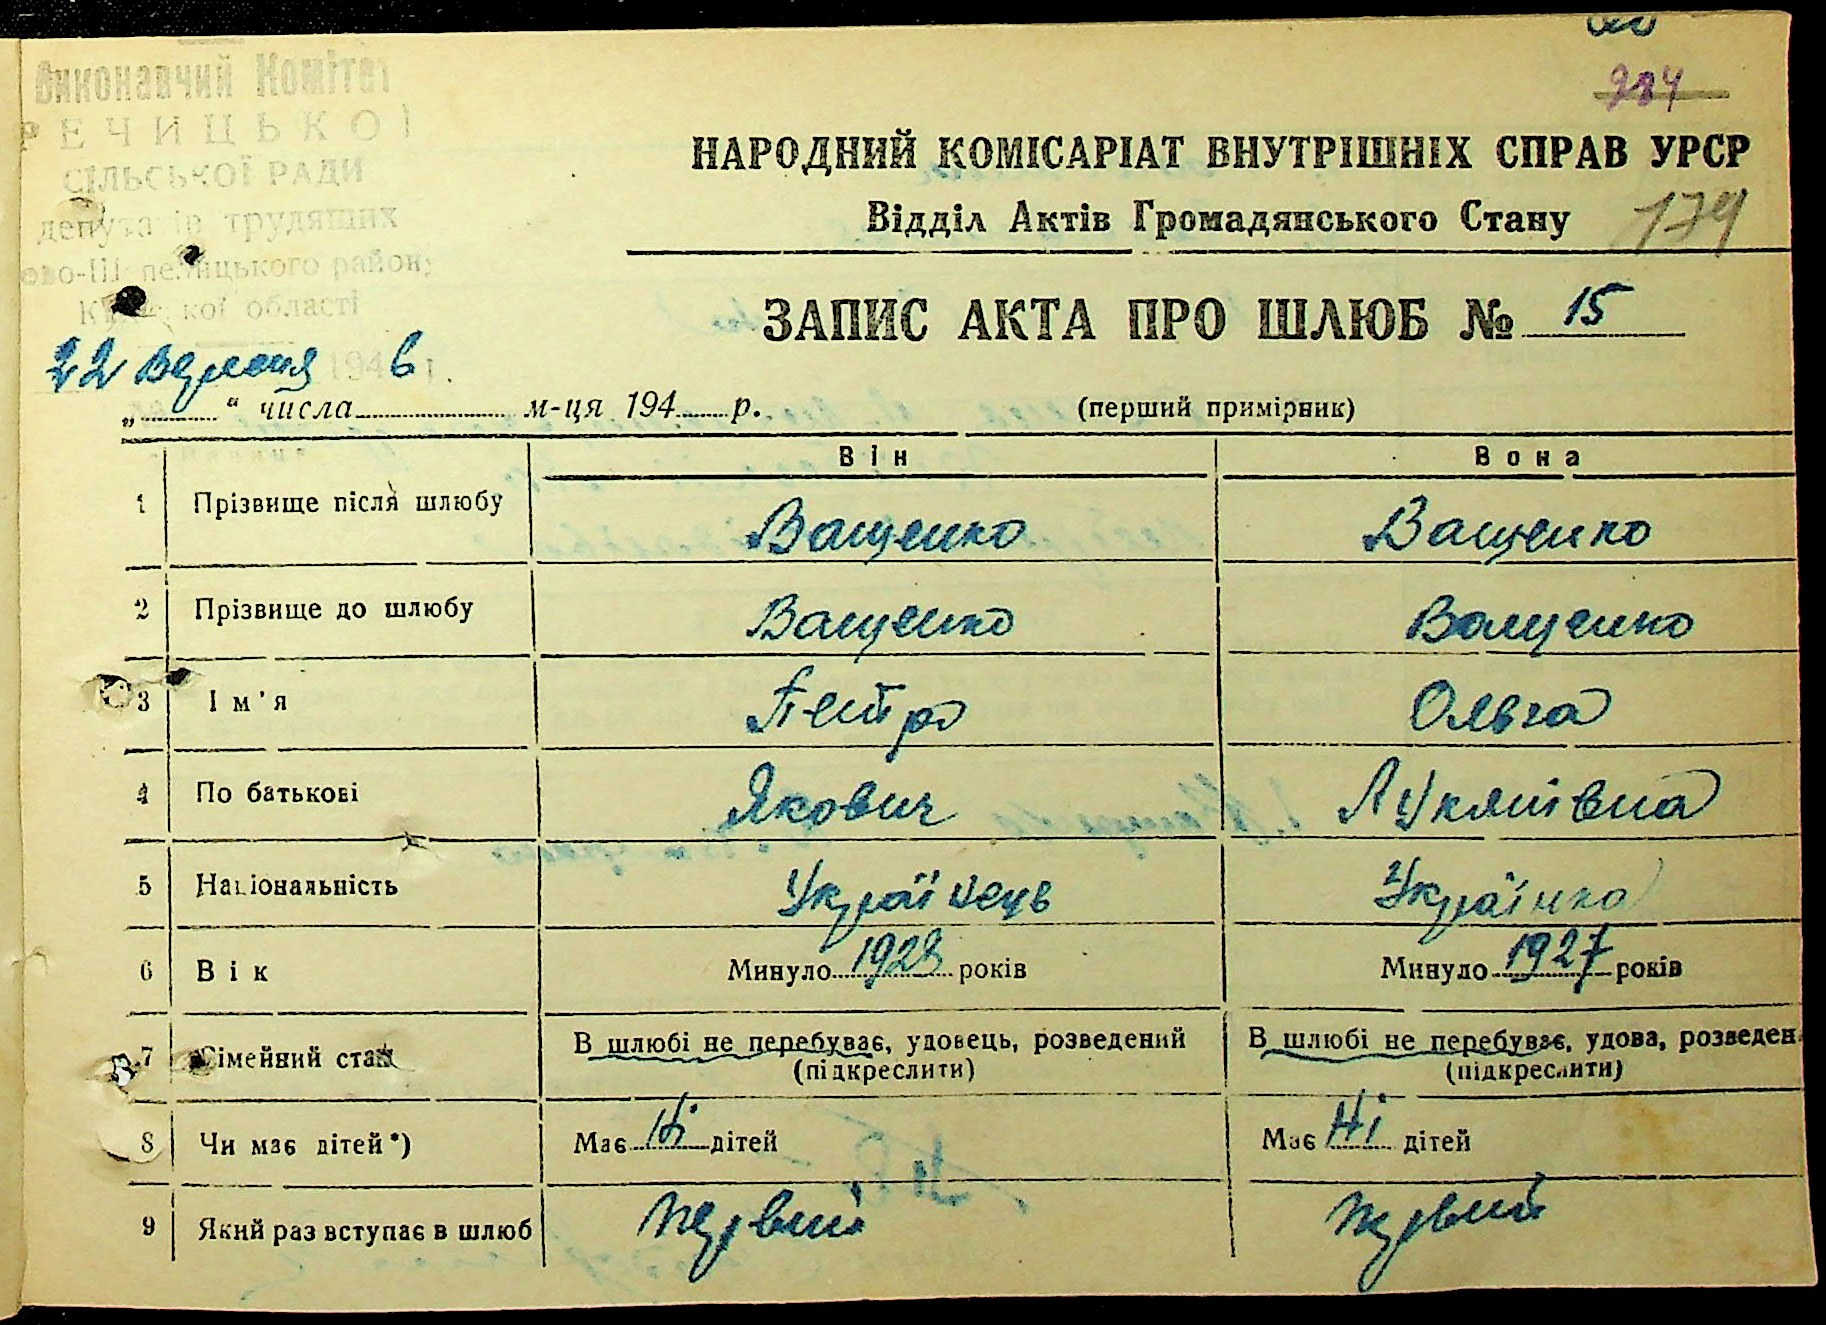 Виконавчий Комітет
РЕЧИЦЬКОЇ
СІЛЬСЬКОЇ РАДИ
депутатів трудящих
району
області
284
НАРОДНИЙ КОМІСАРІАТ ВНУТРІШНІХ СПРАВ УРСР
Відділ Актів Громадянського Стану 179
ЗАПИС АКТА ПРО ШЛЮБ № 15
22 вересня 194 6 р.
„ “ числа м-ця 194 р. (перший примірник)
Він Вона
1 Прізвище після шлюбу Ващенко Ващенко
2 Прізвище до шлюбу Ващенко Ващенко
3 Ім'я Петро Ольга
4 По батькові Якович Лукянівна
5 Національність Українець Українка
6 Вік Минуло 1928 років Минуло 1927 років
7 Сімейний стан В шлюбі не перебуває, удовець, розведений В шлюбі не перебуває, удова, розведен
(підкреслити) (підкреслити)
8 Чи має дітей*) Має Ні дітей Має Ні дітей
9 Який раз вступає в шлюб первий первий